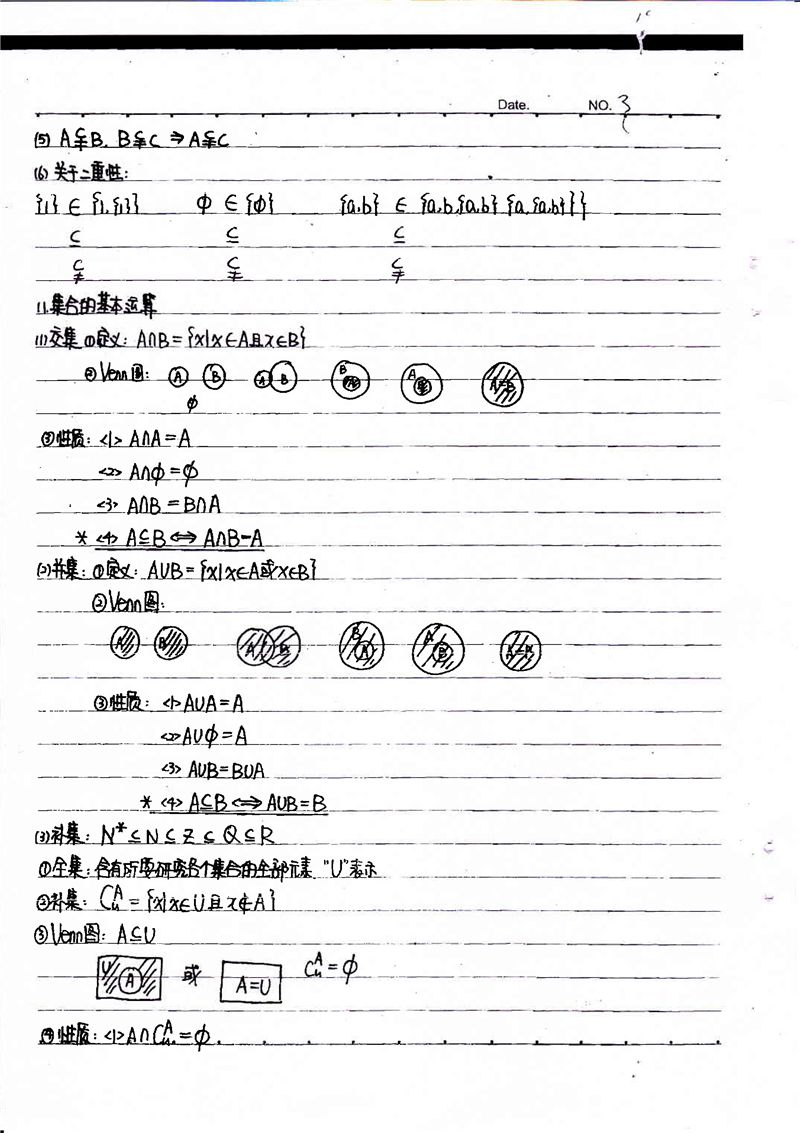 Date. NO. 3
(5) A⫋B. B⫋C ⇒ A⫋C
(6) 关于二重性:
{1} ∈ {1,{1}} ∅ ∈ {∅} {a,b} ∈ {a,b,{a,b} {a,{a,b}}}
⊆ ⊆ ⊆
⫋ ⫋ ⫋
11.集合的基本运算
(1)交集 ①定义: A∩B={x|x∈A且x∈B}
②Venn图: A B A B B A A B A=B
∅
③性质: <1> A∩A=A
<2> A∩∅=∅
<3> A∩B=B∩A
* <4> A⊆B⟺A∩B=A
(2)并集: ①定义: A∪B={x|x∈A或x∈B}
②Venn图:
A B A B B A A B A=B
③性质: <1>A∪A=A
<2>A∪∅=A
<3> A∪B=B∪A
* <4> A⊆B⟺A∪B=B
(3)补集: N*⊆N⊆Z⊆Q⊆R
①全集:含有所要研究各个集合的全部元素 "U"表示
②补集: C_U^A={x|x∈U且x∉A}
③Venn图: A⊆U
U A 或 A=U C_U^A=∅
④性质: <1>A∩C_U^A=∅